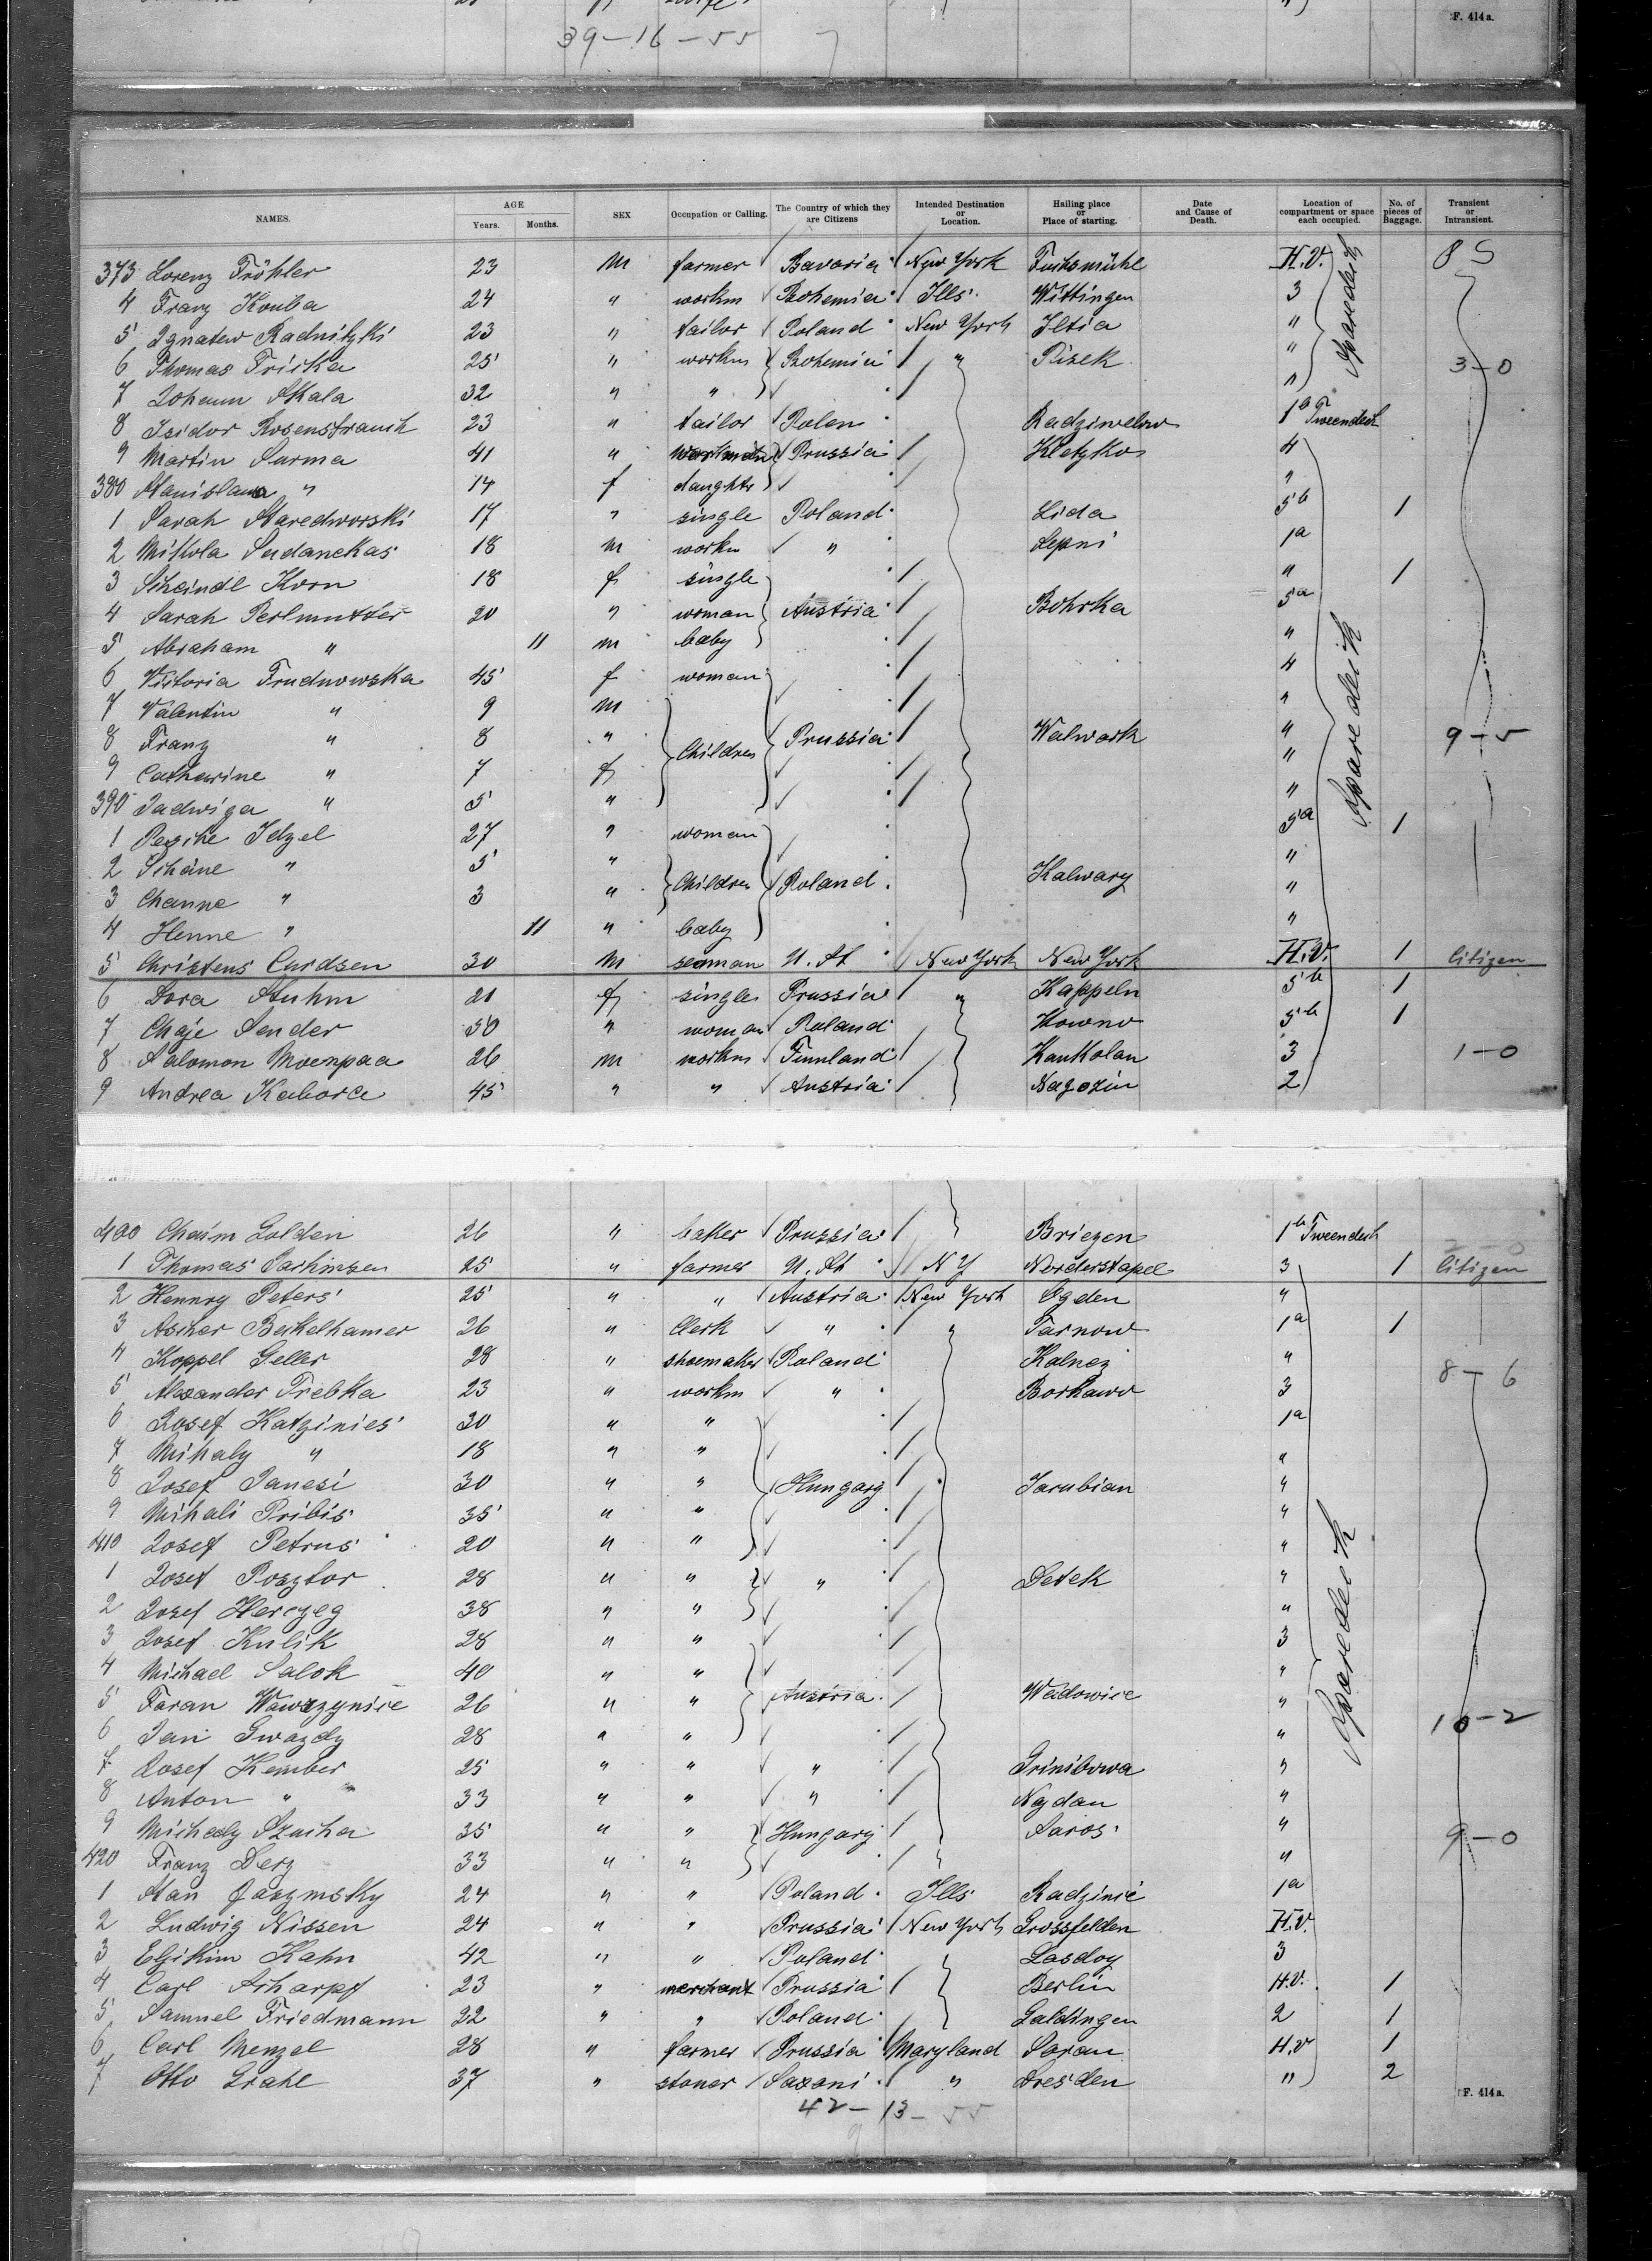 39-16-55
F. 414a.
NAMES. AGE Years. Months. SEX Occupation or Calling. The Country of which they are Citizens Intended Destination or Location. Hailing place or Place of starting. Date and Cause of Death. Location of compartment or space each occupied. No. of pieces of Baggage. Transient or Intransient.
373 Lorenz Fröhler 23 m farmer Bavaria New York Fuchsmühl H.V. 8 5
4 Franz Kouba 24 " workm Bohemia Ills. Wittingen 3
5 Ignatew Radnitzki 23 " tailor Poland New York Iltia "
6 Thomas Friska 25 " workm Bohemia " Pisek " 3-0
7 Johann Skala 32 " " "
8 Isidor Rosenstrauch 23 " tailor Polen Radziwelow 1b Tweendeck
9 Martin Surma 41 " workman Prussia Kletzko 4
380 Stanislawa " 14 f daughtr "
1 Sarah Staredworski 17 " single Poland Lida 5b 1
2 Mikola Sudanekas 18 m workm " Lepni 1a
3 Scheindl Korn 18 f single " 1
4 Sarah Perlmutter 20 " woman Austria Bohrka 5a
5 Abraham " 11 m baby "
6 Victoria Trudnowska 45 f woman 4
7 Valentin " 9 m "
8 Franz " 8 " Children Prussia Walwark " 9-5
9 Catharine " 7 f "
390 Jadwiga " 5 " "
1 Pesche Idzel 27 " woman 5a 1
2 Schäne " 5 " "
3 Channe " 3 " Children Poland Kalwary "
4 Henne " 11 " baby "
5 Christens Cardsen 30 m seaman U. St New York New York H.V. 1 Citizen
6 Dora Stuhm 21 f single Prussia " Kappeln 5b 1
7 Chaje Sender 50 " woman Poland Kowno 5b 1
8 Salomon Moenpaa 26 m workm Finnland Kaukolan 3 1-0
9 Andrea Kaborca 45 " " Austria Nagozin 2
400 Chaim Golden 26 " baker Prussia Briezen 1b Tweendeck
1 Thomas Sachimsen 25 " farmer U. St N Y Norderstapel 3 1 Citizen
2 Hennry Peters 25 " " Austria New York Ogden "
3 Ascher Beckelhamer 26 " Clerk " " Tarnow 1a 1
4 Koppel Geller 28 " shoemaker Poland Kalnez " 8-6
5 Alexander Trebka 23 " workm " Borkawo 3
6 Josef Katzinies 30 " " 1a
7 Mihaly " 18 " " "
8 Josef Janesi 30 " " Hungary Jarubian "
9 Mihali Pribis 35 " " "
410 Josef Petrus 20 " " "
1 Josef Posztor 28 " " " Detek "
2 Josef Herczeg 38 " " "
3 Josef Kulik 28 " " 3
4 Michael Salok 40 " " "
5 Faran Wawrzynice 26 " " Austria Wadowice "
6 Jan Gwazdy 28 " " " 10-2
7 Josef Kember 25 " " " Grinibowa "
8 Anton " 33 " " " Nagdan "
9 Michaly Szucha 35 " " Hungary Saros " 9-0
420 Franz Derz 33 " " "
1 Stan Jaszmsky 24 " " Poland Ills. Radzinie 1a
2 Ludwig Nissen 24 " " Prussia New York Grossfelden H.V.
3 Eljikim Kahn 42 " " Poland Lasdoy 3
4 Carl Scharpf 23 " merchant Prussia Berlin H.V. 1
5 Samuel Friedmann 22 " " Poland Galdingen 2 1
6 Carl Menzel 28 " farmer Prussia Maryland Soran H.V 1
7 Otto Grahl 37 " stoner Saxoni " Dresden " 2
Sparedeck
Sparedeck
Sparedeck
42-13-55
F. 414a.